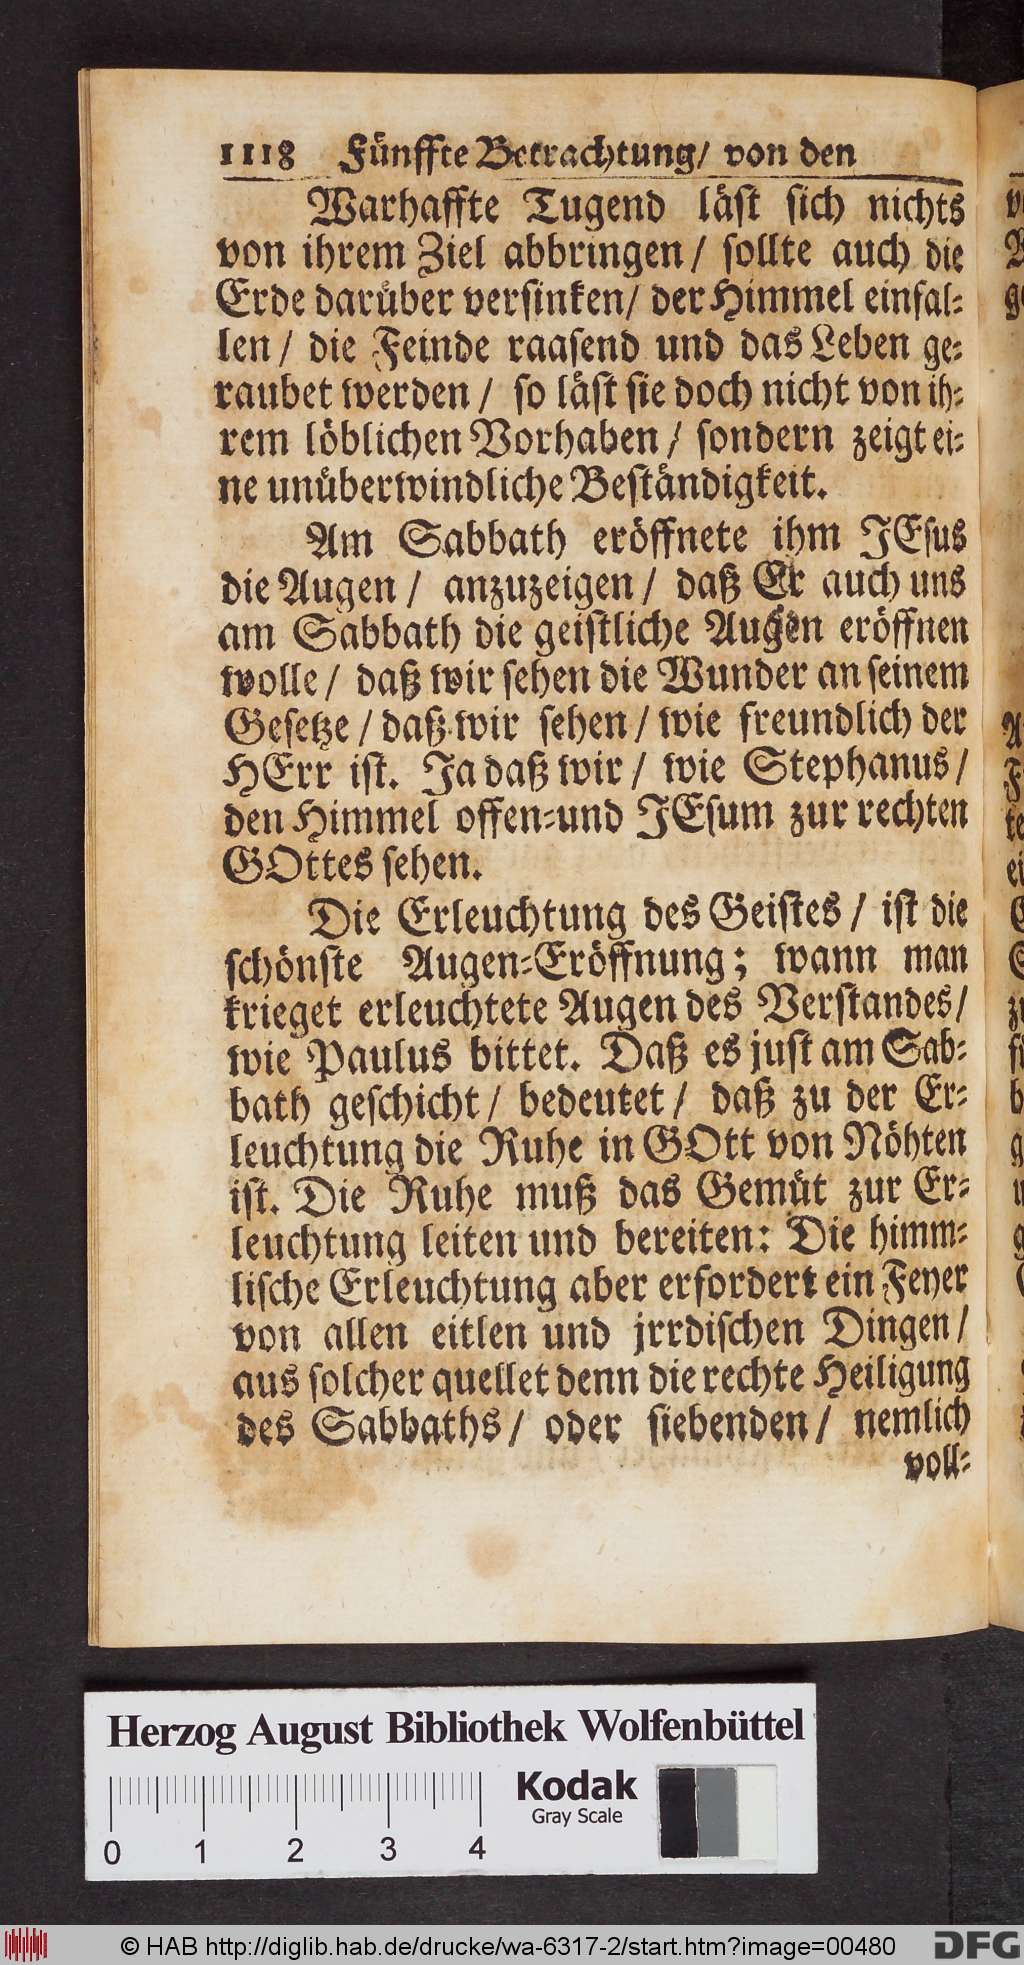 1118 Fünffte Betrachtung/ von den
Warhaffte Tugend läst sich nichts
von ihrem Ziel abbringen / sollte auch die
Erde darüber versinken/ der Himmel einfal-
len / die Feinde raasend und das Leben ge-
raubet werden / so läst sie doch nicht von ih-
rem löblichen Vorhaben / sondern zeigt ei-
ne unüberwindliche Beständigkeit.
Am Sabbath eröffnete ihm JEsus
die Augen / anzuzeigen / daß Er auch uns
am Sabbath die geistliche Augen eröffnen
wolle / daß wir sehen die Wunder an seinem
Gesetze / daß wir sehen / wie freundlich der
HErr ist. Ja daß wir / wie Stephanus /
den Himmel offen-und JEsum zur rechten
GOttes sehen.
Die Erleuchtung des Geistes / ist die
schönste Augen-Eröffnung; wann man
krieget erleuchtete Augen des Verstandes/
wie Paulus bittet. Daß es just am Sab-
bath geschicht / bedeutet / daß zu der Er-
leuchtung die Ruhe in GOtt von Nöhten
ist. Die Ruhe muß das Gemüt zur Er-
leuchtung leiten und bereiten: Die himm-
lische Erleuchtung aber erfordert ein Feyer
von allen eitlen und jrrdischen Dingen /
aus solcher quellet denn die rechte Heiligung
des Sabbaths / oder siebenden / nemlich
voll-
Herzog August Bibliothek Wolfenbüttel
Kodak
Gray Scale
0 1 2 3 4
© HAB http://diglib.hab.de/drucke/wa-6317-2/start.htm?image=00480
DFG